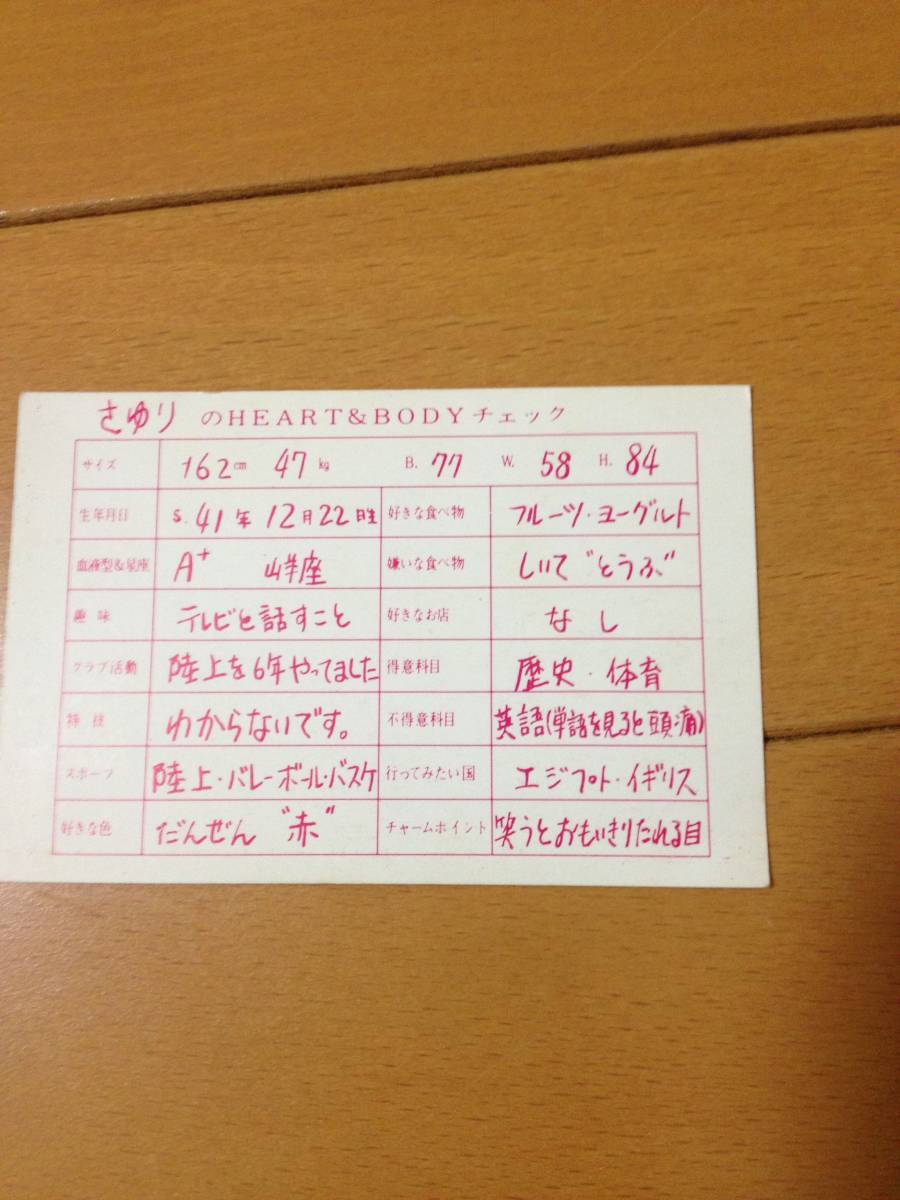 さゆり のHEART&BODYチェック
サイズ 162cm 47kg B. 77 W. 58 H. 84
生年月日 S. 41年 12月22日生 好きな食べ物 フルーツ・ヨーグルト
血液型&星座 A+ 山羊座 嫌いな食べ物 しいて“とうふ”
趣味 テレビと話すこと 好きなお店 なし
クラブ活動 陸上を6年やってました 得意科目 歴史・体育
特技 わからないです。 不得意科目 英語(単語を見ると頭痛)
スポーツ 陸上・バレーボール・バスケ 行ってみたい国 エジプト・イギリス
好きな色 だんぜん“赤” チャームポイント 笑うとおもいきりたれる目